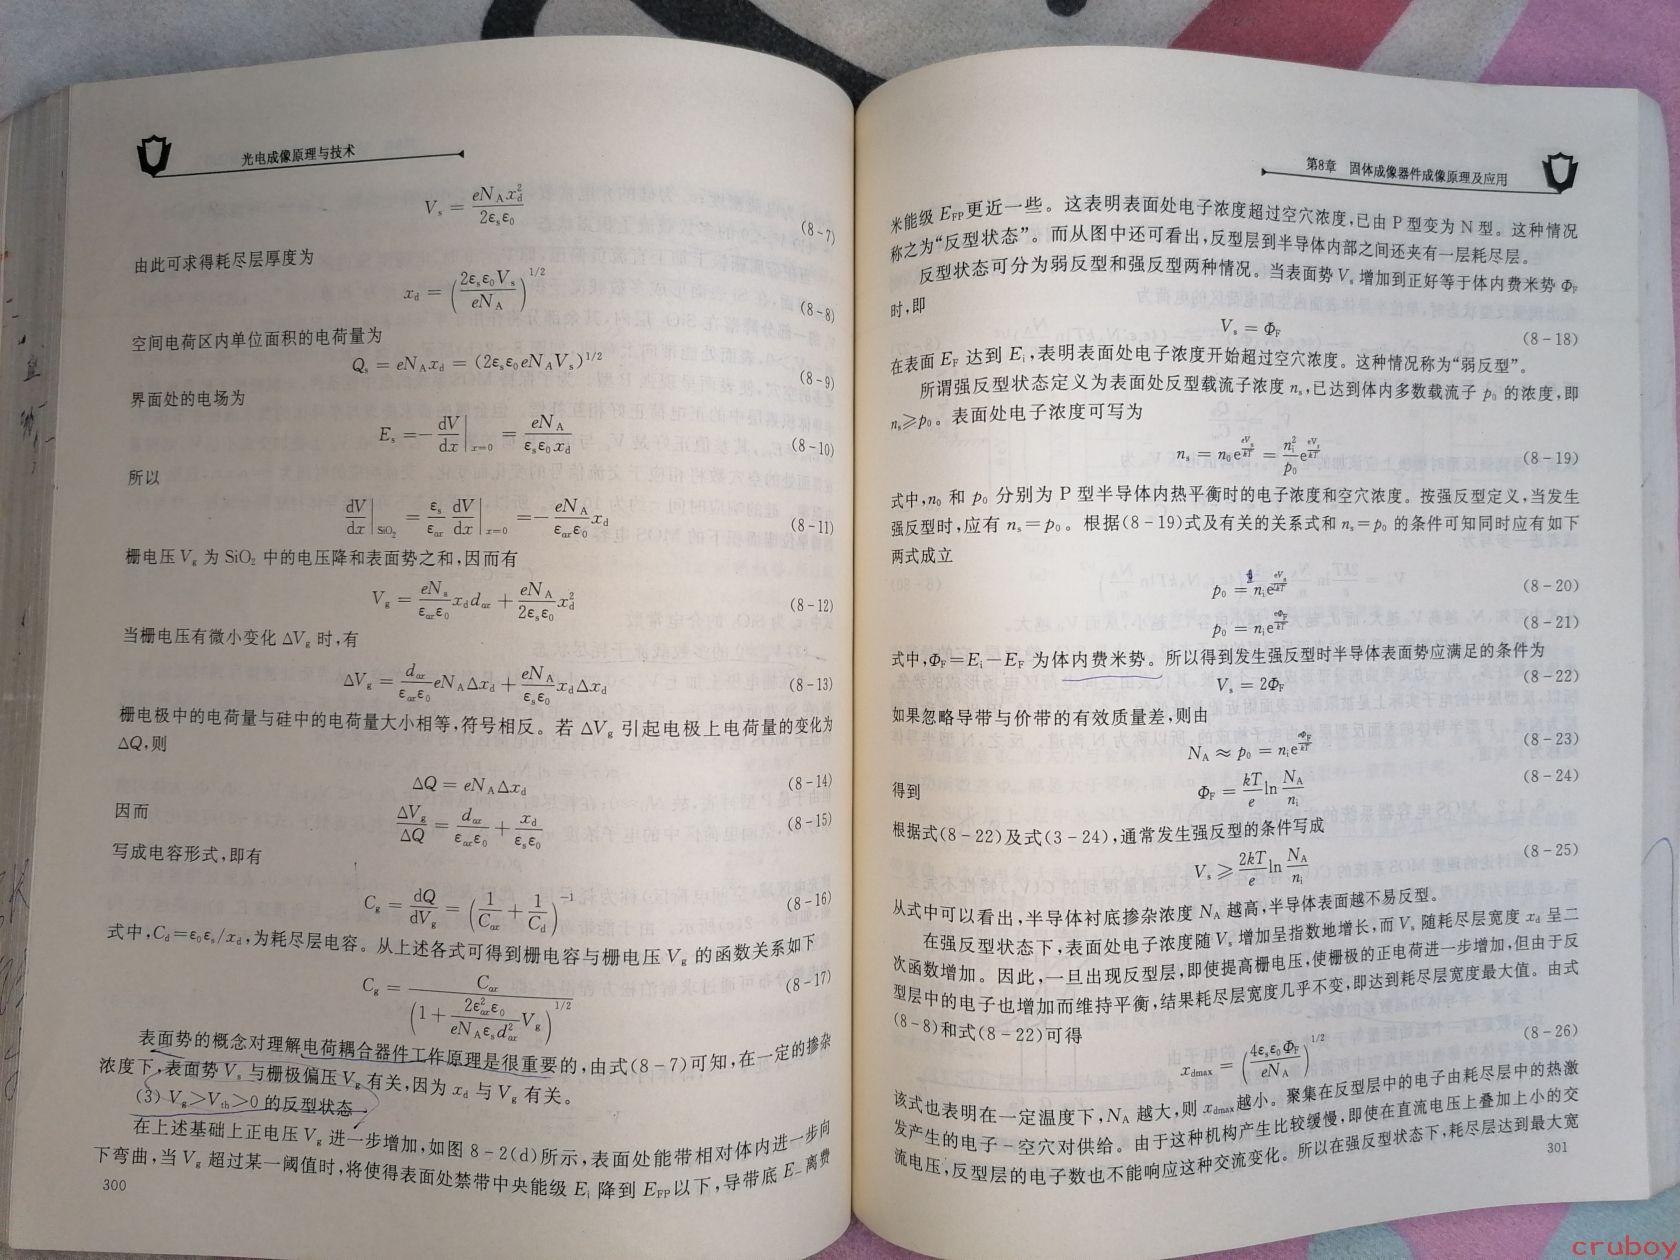 光电成像原理与技术
V_s = eN_A x_d^2 / 2ε_sε_0 (8-7)
由此可求得耗尽层厚度为
x_d = (2ε_sε_0V_s / eN_A)^{1/2} (8-8)
空间电荷区内单位面积的电荷量为
Q_s = eN_A x_d = (2ε_sε_0eN_AV_s)^{1/2} (8-9)
界面处的电场为
E_s = -dV/dx|_{x=0} = eN_A / ε_sε_0x_d (8-10)
所以
dV/dx|_{SiO_2} = ε_s/ε_{ox} dV/dx|_{x=0} = -eN_A/ε_{ox}ε_0 x_d (8-11)
栅电压 V_g 为 SiO_2 中的电压降和表面势之和,因而有
V_g = eN_s/ε_{ox}ε_0 x_d d_{ox} + eN_A/2ε_sε_0 x_d^2 (8-12)
当栅电压有微小变化 ΔV_g 时,有
ΔV_g = d_{ox}/ε_{ox}ε_0 eN_AΔx_d + eN_A/ε_sε_0 x_dΔx_d (8-13)
栅电极中的电荷量与硅中的电荷量大小相等,符号相反。若 ΔV_g 引起电极上电荷量的变化为
ΔQ,则
ΔQ = eN_AΔx_d (8-14)
因而
ΔV_g/ΔQ = d_{ox}/ε_{ox}ε_0 + x_d/ε_sε_0 (8-15)
写成电容形式,即有
C_g = dQ/dV_g = (1/C_{ox} + 1/C_d)^{-1} (8-16)
式中,C_d=ε_0ε_s/x_d,为耗尽层电容。从上述各式可得到栅电容与栅电压 V_g 的函数关系如下
C_g = C_{ox} / (1 + 2ε_{ox}^2ε_0/eN_Aε_sd_{ox}^2 V_g)^{1/2} (8-17)
表面势的概念对理解电荷耦合器件工作原理是很重要的,由式(8-7)可知,在一定的掺杂
浓度下,表面势 V_s 与栅极偏压 V_g 有关,因为 x_d 与 V_g 有关。
(3) V_g>V_{th}>0 的反型状态
在上述基础上正电压 V_g 进一步增加,如图 8-2(d)所示,表面处能带相对体内进一步向
下弯曲,当 V_g 超过某一阈值时,将使得表面处禁带中央能级 E_i 降到 E_{FP} 以下,导带底 E_- 离费
300
第8章 固体成像器件成像原理及应用
米能级 E_{FP} 更近一些。这表明表面处电子浓度超过空穴浓度,已由 P 型变为 N 型。这种情况
称之为“反型状态”。而从图中还可看出,反型层到半导体内部之间还夹有一层耗尽层。
反型状态可分为弱反型和强反型两种情况。当表面势 V_s 增加到正好等于体内费米势 Φ_F
时,即
V_s = Φ_F (8-18)
在表面 E_F 达到 E_i,表明表面处电子浓度开始超过空穴浓度。这种情况称为“弱反型”。
所谓强反型状态定义为表面处反型载流子浓度 n_s,已达到体内多数载流子 p_0 的浓度,即
n_s≥p_0。表面处电子浓度可写为
n_s = n_0e^{eV_s/kT} = n_i^2/p_0 e^{eV_s/kT} (8-19)
式中,n_0 和 p_0 分别为 P 型半导体内热平衡时的电子浓度和空穴浓度。按强反型定义,当发生
强反型时,应有 n_s=p_0。根据(8-19)式及有关的关系式和 n_s=p_0 的条件可知同时应有如下
两式成立
p_0 = n_ie^{eV_s/2kT} (8-20)
p_0 = n_ie^{eΦ_F/kT} (8-21)
式中,Φ_F=E_i-E_F 为体内费米势。所以得到发生强反型时半导体表面势应满足的条件为
V_s = 2Φ_F (8-22)
如果忽略导带与价带的有效质量差,则由
N_A ≈ p_0 = n_ie^{eΦ_F/kT} (8-23)
得到 Φ_F = kT/e ln N_A/n_i (8-24)
根据式(8-22)及式(3-24),通常发生强反型的条件写成
V_s ≥ 2kT/e ln N_A/n_i (8-25)
从式中可以看出,半导体衬底掺杂浓度 N_A 越高,半导体表面越不易反型。
在强反型状态下,表面处电子浓度随 V_s 增加呈指数地增长,而 V_s 随耗尽层宽度 x_d 呈二
次函数增加。因此,一旦出现反型层,即使提高栅电压,使栅极的正电荷进一步增加,但由于反
型层中的电子也增加而维持平衡,结果耗尽层宽度几乎不变,即达到耗尽层宽度最大值。由式
(8-8)和式(8-22)可得
x_{dmax} = (4ε_sε_0Φ_F / eN_A)^{1/2} (8-26)
该式也表明在一定温度下,N_A 越大,则 x_{dmax} 越小。聚集在反型层中的电子由耗尽层中的热激
发产生的电子-空穴对供给。由于这种机构产生比较缓慢,即使在直流电压上叠加上小的交
流电压,反型层的电子数也不能响应这种交流变化。所以在强反型状态下,耗尽层达到最大宽
301
cruboy